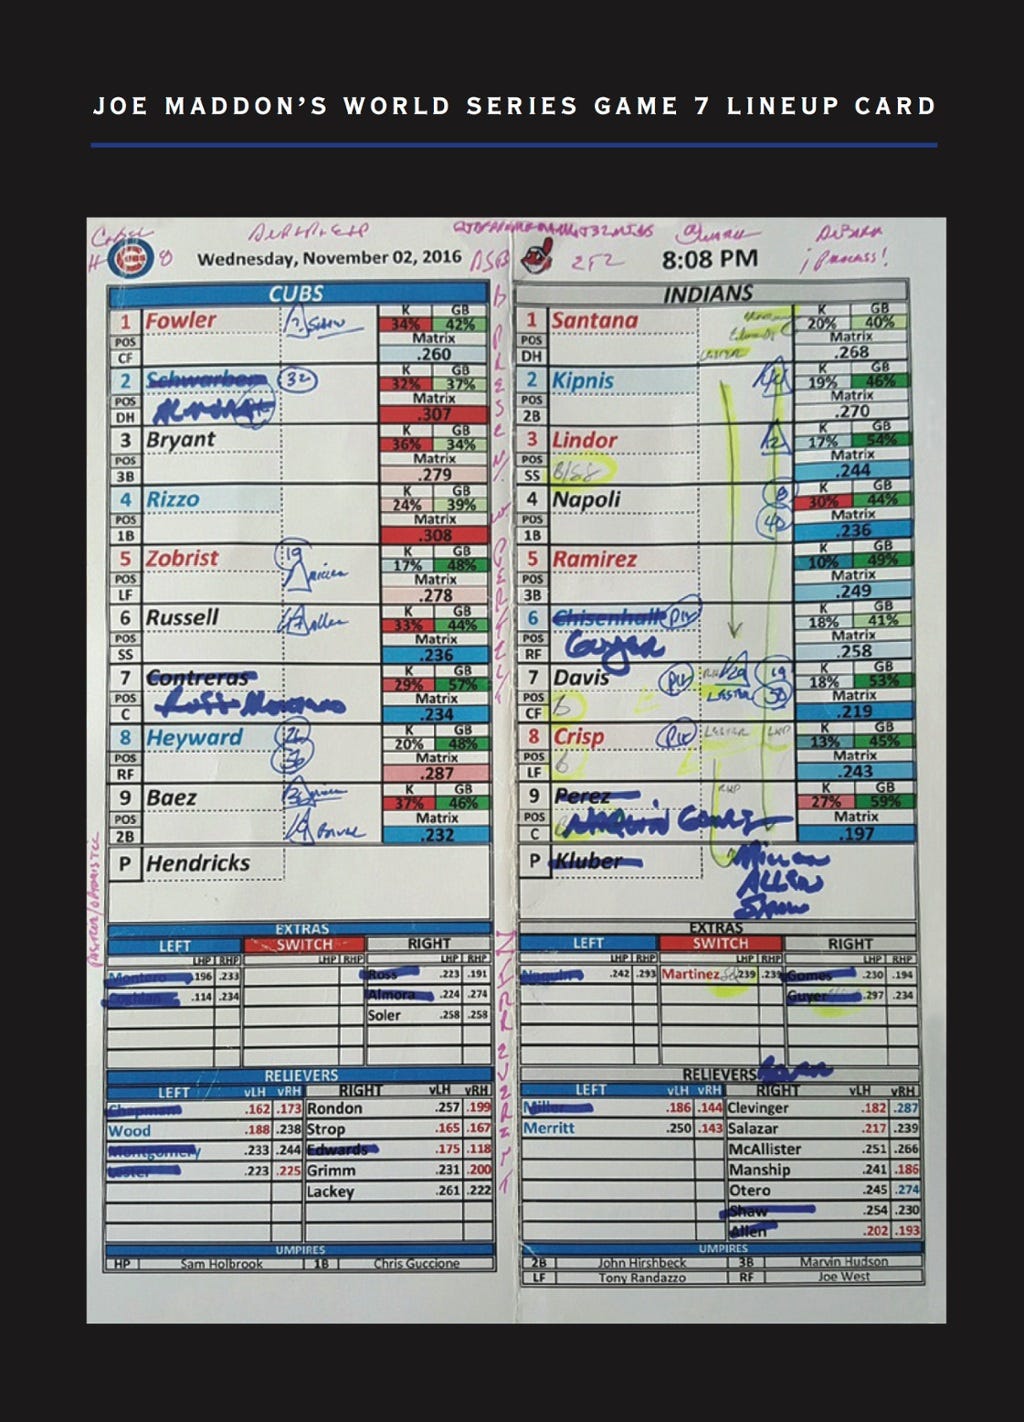 JOE MADDON'S WORLD SERIES GAME 7 LINEUP CARD
Wednesday, November 02, 2016
8:08 PM
CUBS
1 Fowler K GB
34% 42%
POS Matrix
CF .260
2 Schwarber 32 K GB
32% 37%
POS Matrix
DH .307
3 Bryant K GB
36% 34%
POS Matrix
3B .279
4 Rizzo K GB
24% 39%
POS Matrix
1B .308
5 Zobrist 19 K GB
17% 48%
POS Matrix
LF .278
6 Russell K GB
33% 44%
POS Matrix
SS .236
7 Contreras K GB
29% 57%
POS Matrix
C .234
8 Heyward K GB
20% 48%
POS Matrix
RF .287
9 Baez K GB
37% 46%
POS Matrix
2B .232
P Hendricks
EXTRAS
LEFT SWITCH RIGHT
LHP RHP LHP RHP LHP RHP
Montero .196 .233 Ross .223 .191
Coghlan .114 .234 Almora .224 .274
Soler .258 .258
RELIEVERS
LEFT vLH vRH RIGHT vLH vRH
Chapman .162 .173 Rondon .257 .199
Wood .188 .238 Strop .165 .167
Montgomery .233 .244 Edwards .175 .118
Lester .223 .225 Grimm .231 .200
Lackey .261 .222
UMPIRES
HP Sam Holbrook 1B Chris Guccione
INDIANS
1 Santana K GB
20% 40%
POS Matrix
DH LESTER .268
2 Kipnis K GB
19% 46%
POS Matrix
2B .270
3 Lindor K GB
17% 54%
POS B/SS Matrix
SS .244
4 Napoli K GB
30% 44%
POS Matrix
1B .236
5 Ramirez K GB
10% 49%
POS Matrix
3B .249
6 Chisenhall K GB
18% 41%
POS Guyer Matrix
RF .258
7 Davis K GB
18% 53%
POS LESTER Matrix
CF .219
8 Crisp LESTER K GB
13% 45%
POS Matrix
LF .243
9 Perez RHP K GB
27% 59%
POS NAQUIN GOMES Matrix
C .197
P Kluber Miller
ALLEN
Shaw
EXTRAS
LEFT SWITCH RIGHT
LHP RHP LHP RHP LHP RHP
Naquin .242 .293 Martinez .239 .239 Gomes .230 .194
Guyer .297 .234
RELIEVERS
LEFT vLH vRH RIGHT vLH vRH
Miller .186 .144 Clevinger .182 .287
Merritt .250 .143 Salazar .217 .239
McAllister .251 .266
Manship .241 .186
Otero .245 .274
Shaw .254 .230
Allen .202 .193
UMPIRES
2B John Hirshbeck 3B Marvin Hudson
LF Tony Randazzo RF Joe West